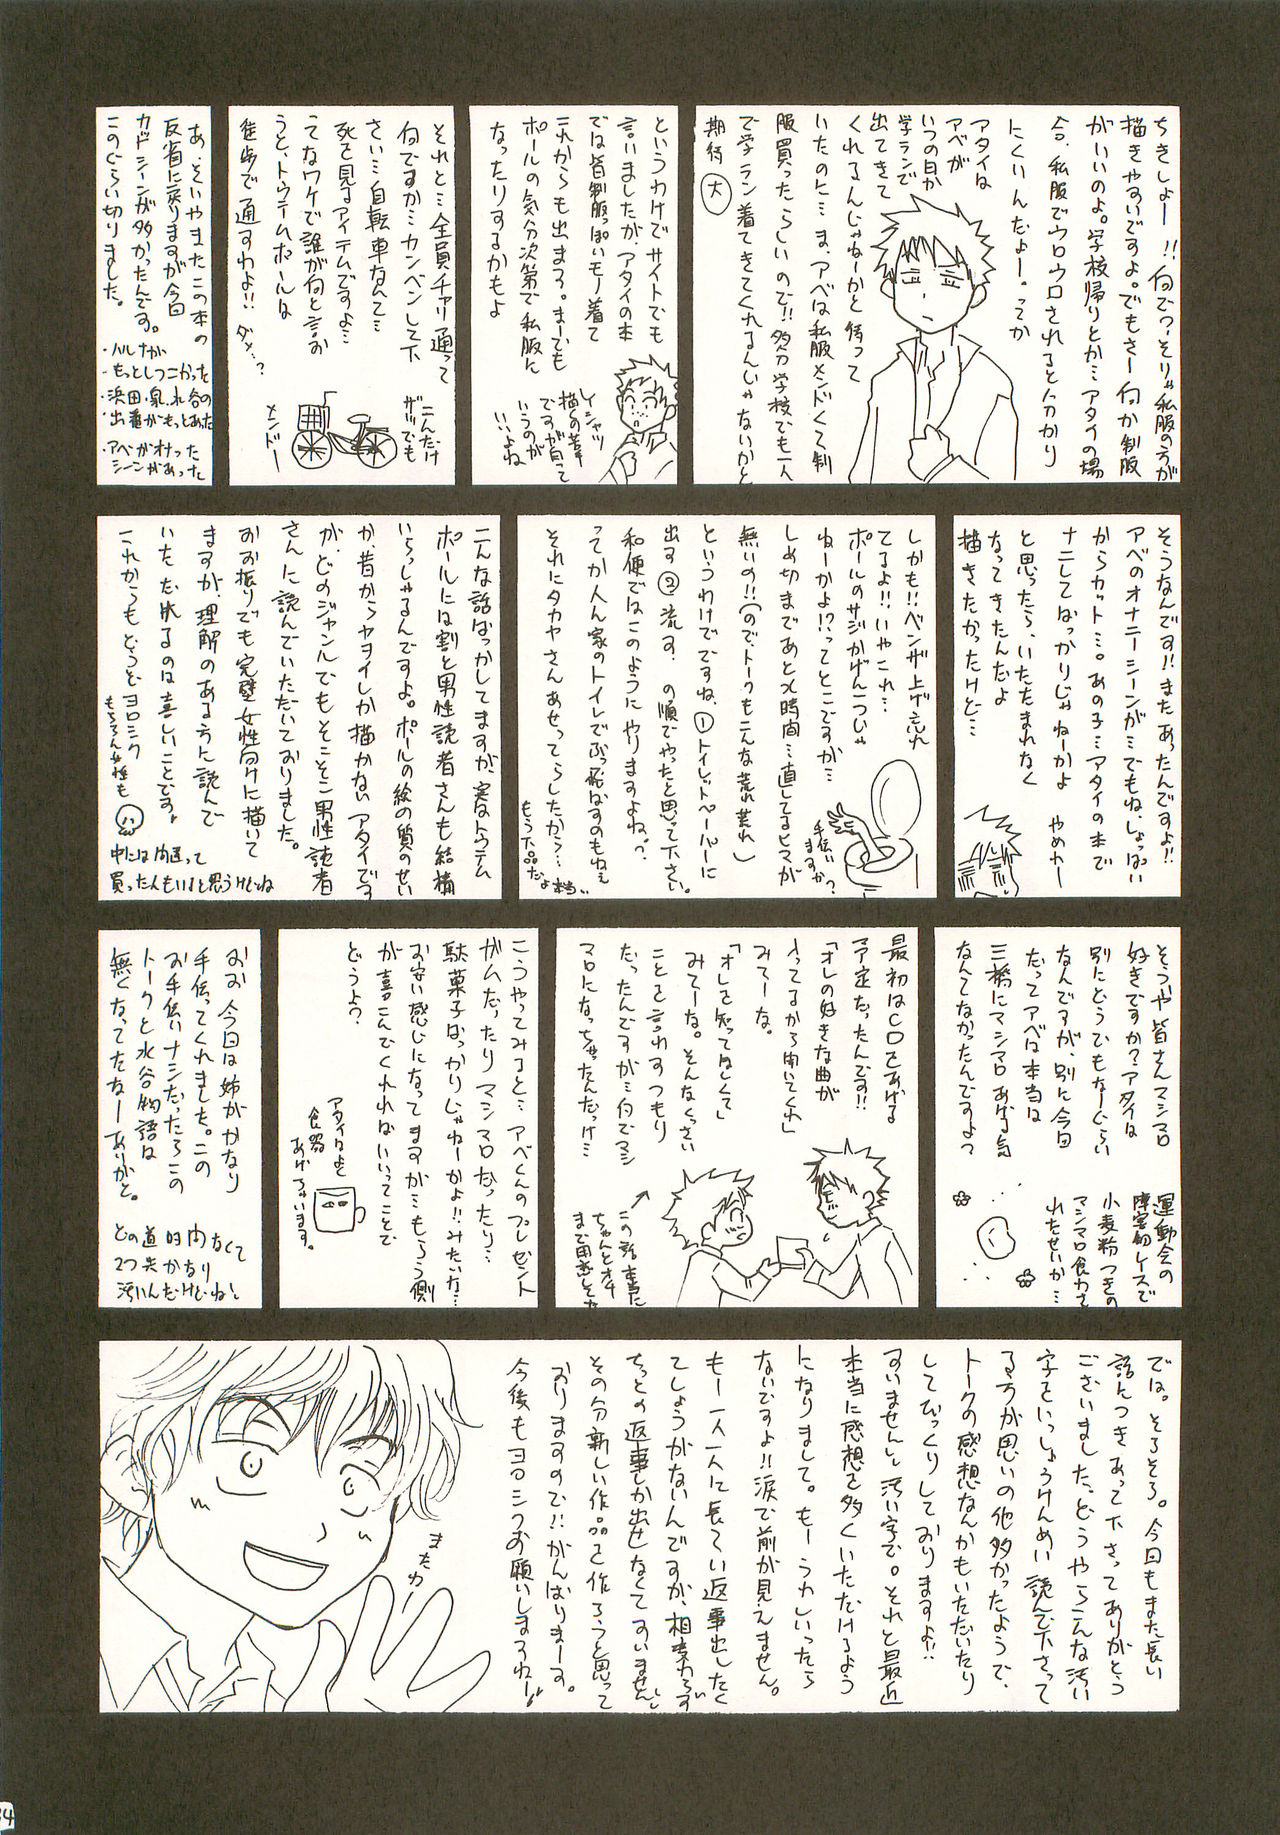 ちきしょー!!何でってそりゃ私服の方が
描きやすいですよ。でもさー何か制服
がいいのよ。学校帰りとか…アタイの場
合、私服でウロウロされると分かり
にくいんだよー。ってか
アタイは
アベが
いつの日か
学ランで
出てきて
くれるんじゃねーかと待って
いたのに…ま、アベは私服メンドくて制
服買ったらしいので!!多分学校でも一人
で学ラン着てきてくれるんじゃないかと
期待 大
というわけでサイトでも
言いましたが、アタイの本
では皆制服っぽいモノ着て
これからも出まする。まーでも
ポールの気分次第で私服に
なったりするかもよ
Yシャツ
描くの苦手
ですが白って
いうのが
いいよね
それと…全員チャリ通って
何ですか…カンベンして下
さい…自転車なんて…
死を見るアイテムですよ…
ってなワケで誰が何と言お
うと、トウテムポールは
徒歩で通すわよ!!ダメ…?
こんだけ
ザツでも
メンドー
あ、そいやまたこの本の
反省に戻りますが今回
カットシーンが多かったんです。
このぐらい切りました。
・ハルナが
もっとしつこかった
・浜田・泉・水谷の
出番がもっとあった
・アベがオナった
シーンがあった
そうなんです!!またあったんですよ!!
アベのオナニーシーンが…でもね、しょっぱい
からカット…。あの子…アタイの本で
ナニしてばっかりじゃねーかよ やめれー
と思ったら、いたたまれなく
なってきたんだよ
描きたかったけど…
しかも!!ベンザ上げ忘れ
てるよ!!いやこれ…
ポールのサジかげんつぃじゃ
ねーかよ!?ってとこですが…
しめ切まであと×時間…直してるヒマが
無いの!!(ので、トークもこんな荒れ荒れ)
というわけでですね、①トイレットペーパーに
出す②流す、の順でやったと思って下さい。
和便ではこのようにやりますよね?
ってか人ん家のトイレでぶっ飛ばすのもねぇ
それにタカヤさんあせってらしたから…
もう下品だよ本当…
手伝い
ますか?
こんな話ばっかしてますが、実はトウテム
ポールには割と男性読者さんも結構
いらっしゃるんですよ。ポールの絵の質のせい
か、昔からヤヲイしか描かないアタイです
が、どのジャンルでもそこそこ男性読者
さんに読んでいただいておりました。
おお振りでも完璧女性向けに描いて
ますが、理解のある方に読んで
いただけるのは喜しいことです。
これからもどうぞヨロシク
もちろん女性も
中には間違って
買った人もいると思うけどね
そういや皆さんマシマロ
好きですか?アタイは
別にどうでもなーぐらい
なんですが、別に今回
だってアベは本当は
三橋にマシマロあげる気
なんてなかったんですよっ
運動会の
障害物レースで
小麦粉つきの
マシマロ食わさ
れたせいか…
最初はCDをあげる
予定だったんです!!
「オレの好きな曲が
入ってるから聞いてくれ」
みてーな。
「オレを知ってほしくて」
みてーな。そんなくっさい
ことを言わすつもり
だったんですが…何でマシ
マロになっちゃったんだっけ…
この話、本当に
ちゃんとオチ
まで用意してた
こうやってみると…アベくんのプレゼント
ガムだったりマシマロだったり…
駄菓子ばっかりじゃねーかよ!!みたいな…
お安い感じになってますが…もらう側
が喜こんでくれればいいってことで
どうよ?
アタイはよく
食器
あげちゃいます。
おお今回は姉がかなり
手伝ってくれました。この
お手伝いナシだったらこの
トークと水谷物語は
無くなってたなーありがと。
どの道 時間なくて
2つ共 かなり
汚いんだけどね…
では。そろそろ。今回もまた長い
話につきあって下さってありがとう
ございました。どうやらこんな汚い
字をいっしょうけんめい読んで下さって
る方が思いの他多かったようで、
トークの感想なんかもいただいたり
してびっくりしておりますよ!!
すいませんし汚い字で。それと最近
本当に感想を多くいただけるよう
になりまして。もーうれしいったら
ないですよ!!涙で前が見えません。
もー一人一人に長ぐい返事出したく
てしょうがないんですが、相変わらず
ちょっとの返事しか出せなくてすいません。
その分新しい作品を作ろうと思って
おりますので!!がんばりまーす。
今後もヨロシクお願いしまするねー!
またね
34